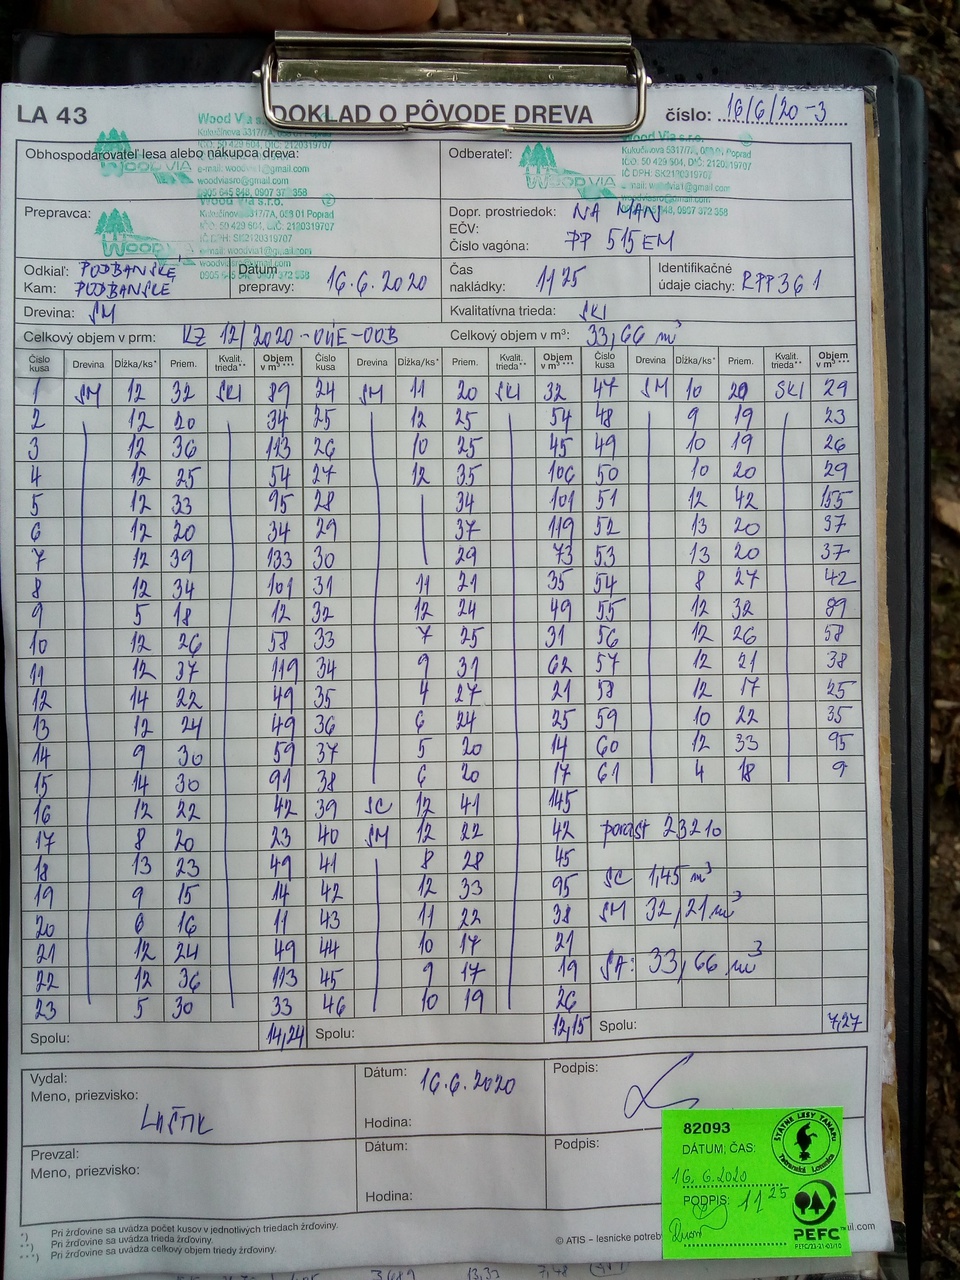 LA 43 DOKLAD O PÔVODE DREVA číslo: 16/6/20-3
Obhospodarovateľ lesa alebo nákupca dreva:
Wood Via s.r.o.
Kukučínova 3317/7A, 058 01 Poprad
IČO: 50 429 604, DIČ: 2120319707
e-mail: woodvia1@gmail.com
woodviasro@gmail.com
0905 645 848, 0907 372 358
Odberateľ:
Wood Via s.r.o.
Kukučínova 3317/7A, 058 01 Poprad
IČO: 50 429 604, DIČ: 2120319707
IČ DPH: SK2120319707
WOODVIA
Prepravca:
WOODVIA
Wood Via s.r.o.
Kukučínova 3317/7A, 058 01 Poprad
IČO: 50 429 604, DIČ: 2120319707
IČ DPH: SK2120319707
e-mail: woodvia1@gmail.com
Dopr. prostriedok: NA MAN
EČV:
Číslo vagóna: PP 515EM
Odkiaľ: PODBANSKÉ
Kam: PODBANSKÉ
Dátum prepravy: 16.6.2020
Čas nakládky: 11 25
Identifikačné údaje ciachy: RPP361
Drevina: SM Kvalitatívna trieda: SKI
Celkový objem v prm: KZ 12/2020-OÚE-OOB Celkový objem v m³: 33,66 m³
Číslo kusa Drevina Dĺžka/ks* Priem. Kvalit. trieda** Objem v m³*** Číslo kusa Drevina Dĺžka/ks* Priem. Kvalit. trieda** Objem v m³*** Číslo kusa Drevina Dĺžka/ks* Priem. Kvalit. trieda** Objem v m³***
1 SM 12 32 SKI 89 24 SM 11 20 SKI 32 47 SM 10 20 SKI 29
2 12 20 34 25 12 25 54 48 9 19 23
3 12 36 113 26 10 25 45 49 10 19 26
4 12 25 54 27 12 35 106 50 10 20 29
5 12 33 95 28 34 101 51 12 42 155
6 12 20 34 29 37 119 52 13 20 37
7 12 39 133 30 29 73 53 13 20 37
8 12 34 101 31 11 21 35 54 8 27 42
9 5 18 12 32 12 24 49 55 12 32 89
10 12 26 58 33 7 25 31 56 12 26 58
11 12 37 119 34 9 31 62 57 12 21 38
12 14 22 49 35 4 27 21 58 12 17 25
13 12 24 49 36 6 24 25 59 10 22 35
14 9 30 59 37 5 20 14 60 12 33 95
15 14 30 91 38 6 20 17 61 4 18 9
16 12 22 42 39 SC 12 41 145
17 8 20 23 40 SM 12 22 42 porast 23210
18 13 23 49 41 8 28 45
19 9 15 14 42 12 33 95 SC 1,45 m³
20 6 16 11 43 11 22 38 SM 32,21 m³
21 12 24 49 44 10 17 21
22 12 36 113 45 9 17 19 SA: 33,66 m³
23 5 30 33 46 10 19 26
Spolu: 14,24 Spolu: 12,15 Spolu: 7,27
Vydal:
Meno, priezvisko:
Dátum: 16.6.2020
Hodina:
Podpis:
Prevzal:
Meno, priezvisko:
Dátum:
Hodina:
Podpis:
82093
DÁTUM, ČAS:
16.6.2020
PODPIS: 11 25
ŠTÁTNE LESY TANAPU
Tatranská Lomnica
PEFC
*) Pri žrďovine sa uvádza počet kusov v jednotlivých triedach žrďoviny.
**) Pri žrďovine sa uvádza trieda žrďoviny.
***) Pri žrďovine sa uvádza celkový objem triedy žrďoviny.
© ATIS – lesnícke potreb